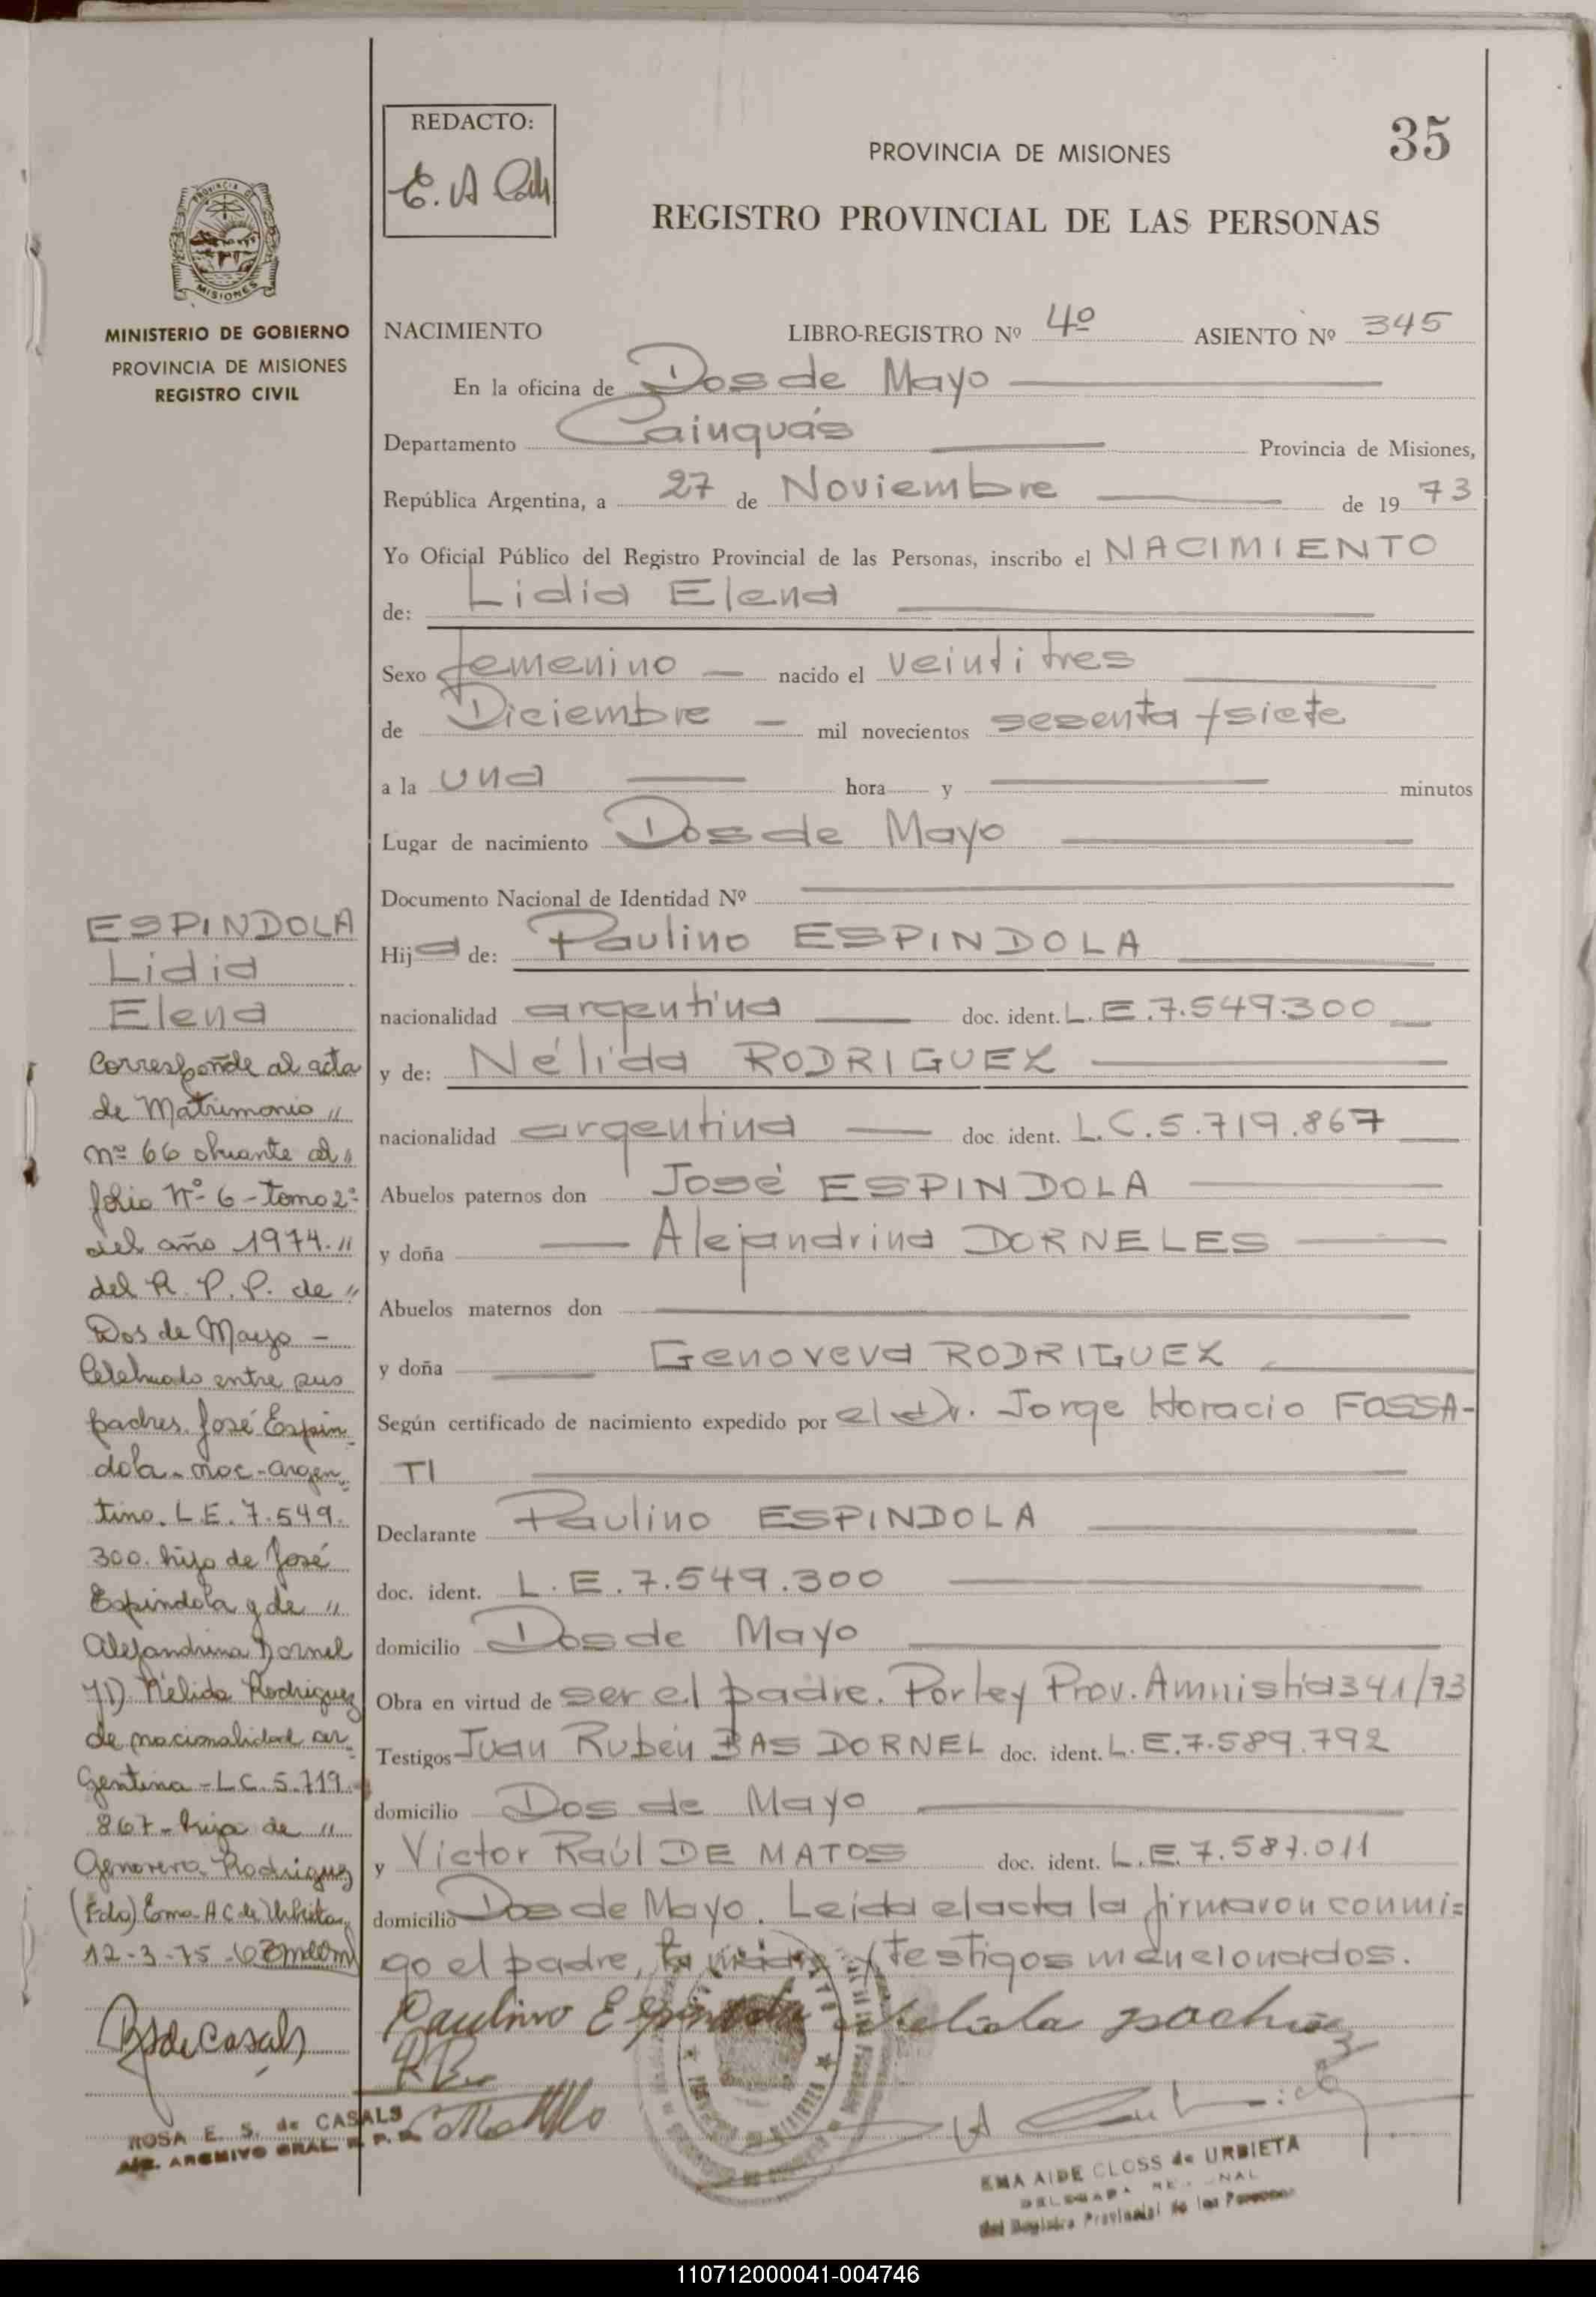 35
REDACTO:
E. A
PROVINCIA DE MISIONES
REGISTRO PROVINCIAL DE LAS PERSONAS
PROVINCIA DE
MISIONES
MINISTERIO DE GOBIERNO
PROVINCIA DE MISIONES
REGISTRO CIVIL
NACIMIENTO LIBRO-REGISTRO Nº 4º ASIENTO Nº 345
En la oficina de Dos de Mayo
Departamento Cainguás Provincia de Misiones,
República Argentina, a 27 de Noviembre de 19 73
Yo Oficial Público del Registro Provincial de las Personas, inscribo el NACIMIENTO
de: Lidia Elena
Sexo femenino nacido el veintitres
de Diciembre mil novecientos sesenta y siete
a la una hora y minutos
Lugar de nacimiento Dos de Mayo
Documento Nacional de Identidad Nº
Hija de: Paulino ESPINDOLA
nacionalidad argentina doc. ident. L.E.7.549.300
y de: Nélida RODRIGUEZ
nacionalidad argentina doc. ident. L.C.5.719.867
Abuelos paternos don José ESPINDOLA
y doña Alejandrina DORNELES
Abuelos maternos don
y doña Genoveva RODRIGUEZ
Según certificado de nacimiento expedido por el Dr. Jorge Horacio FOSSA-
TI
Declarante Paulino ESPINDOLA
doc. ident. L.E.7.549.300
domicilio Dos de Mayo
Obra en virtud de ser el padre. Por ley Prov. Amnistia 341/73
Testigos Juan Rubén BAS DORNEL doc. ident. L.E.7.589.792
domicilio Dos de Mayo
y Victor Raúl DE MATOS doc. ident. L.E.7.587.011
domicilio Dos de Mayo. Leida el acta la firmaron conmi=
go el padre, la madre y testigos mencionados.
Paulino Espindola Nelida
ESPINDOLA
Lidia
Elena
Corresponde al acta
de Matrimonio "
nº 66 obrante al "
folio Nº 6 - tomo 2º
del año 1974. "
del R. P. P. de "
Dos de Mayo -
Celebrado entre sus
padres. José Espin-
dola - nac - argen-
tino. L.E. 7.549.
300. hijo de José
Espindola y de "
Alejandrina Dornel
y D) Nélida Rodriguez
de nacionalidad ar-
gentina - LC. 5.719.
867 - hija de "
Genoveva Rodriguez
(Fdo) Ema A C de Urbieta
12-3-75
RSdeCasals
ROSA E. S. de CASALS
ARCHIVO GRAL. R. P. P.
EMA AIDE CLOSS de URBIETA
del Registro Provincial de las Personas
110712000041-004746